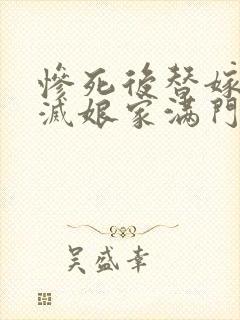 慘死後替嫁
滅娘家滿門
吳盛幸